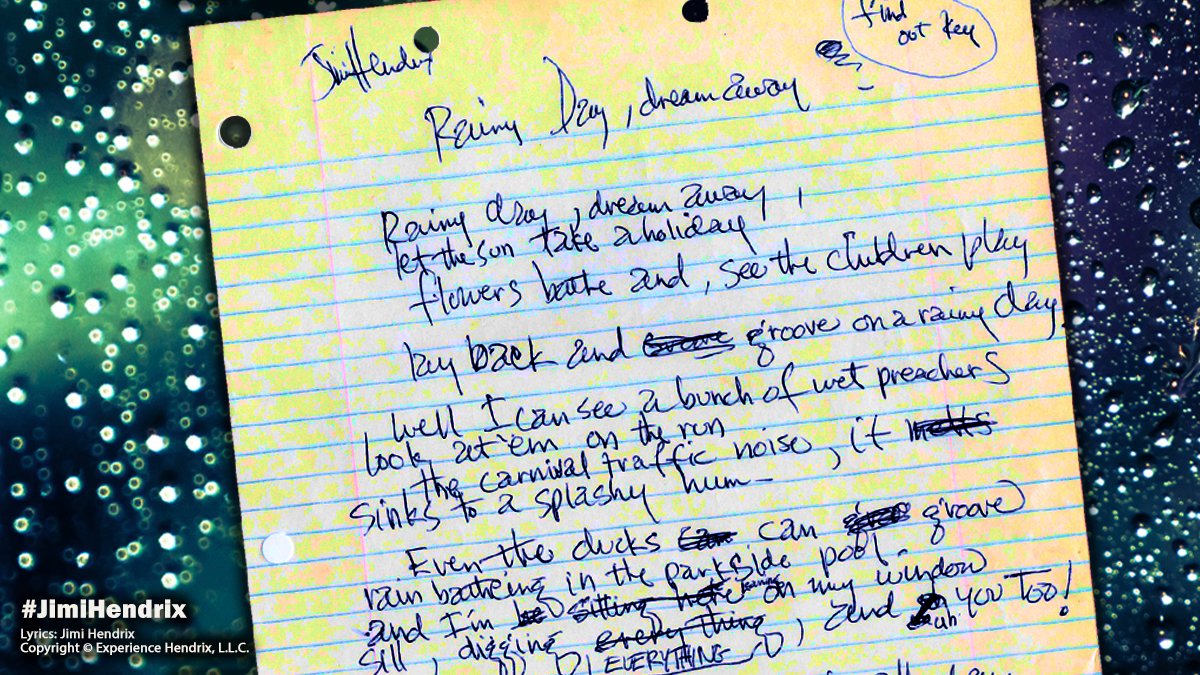 find
out key
Jimi Hendrix
Rainy Day, dream away
Rainy day, dream away,
let the sun take a holiday
flowers bathe and, see the children play
lay back and groove on a rainy day.
well I can see a bunch of wet preachers
look at 'em on the run
the carnival traffic noise, it melts
sinks to a splashy hum –
Even the ducks can can groove
rain batheing in the parkside pool.
and I'm sitting here leaning on my window
sill, digging every thing, and ah you Too!
EVERYTHING
#JimiHendrix
Lyrics: Jimi Hendrix
Copyright © Experience Hendrix, L.L.C.